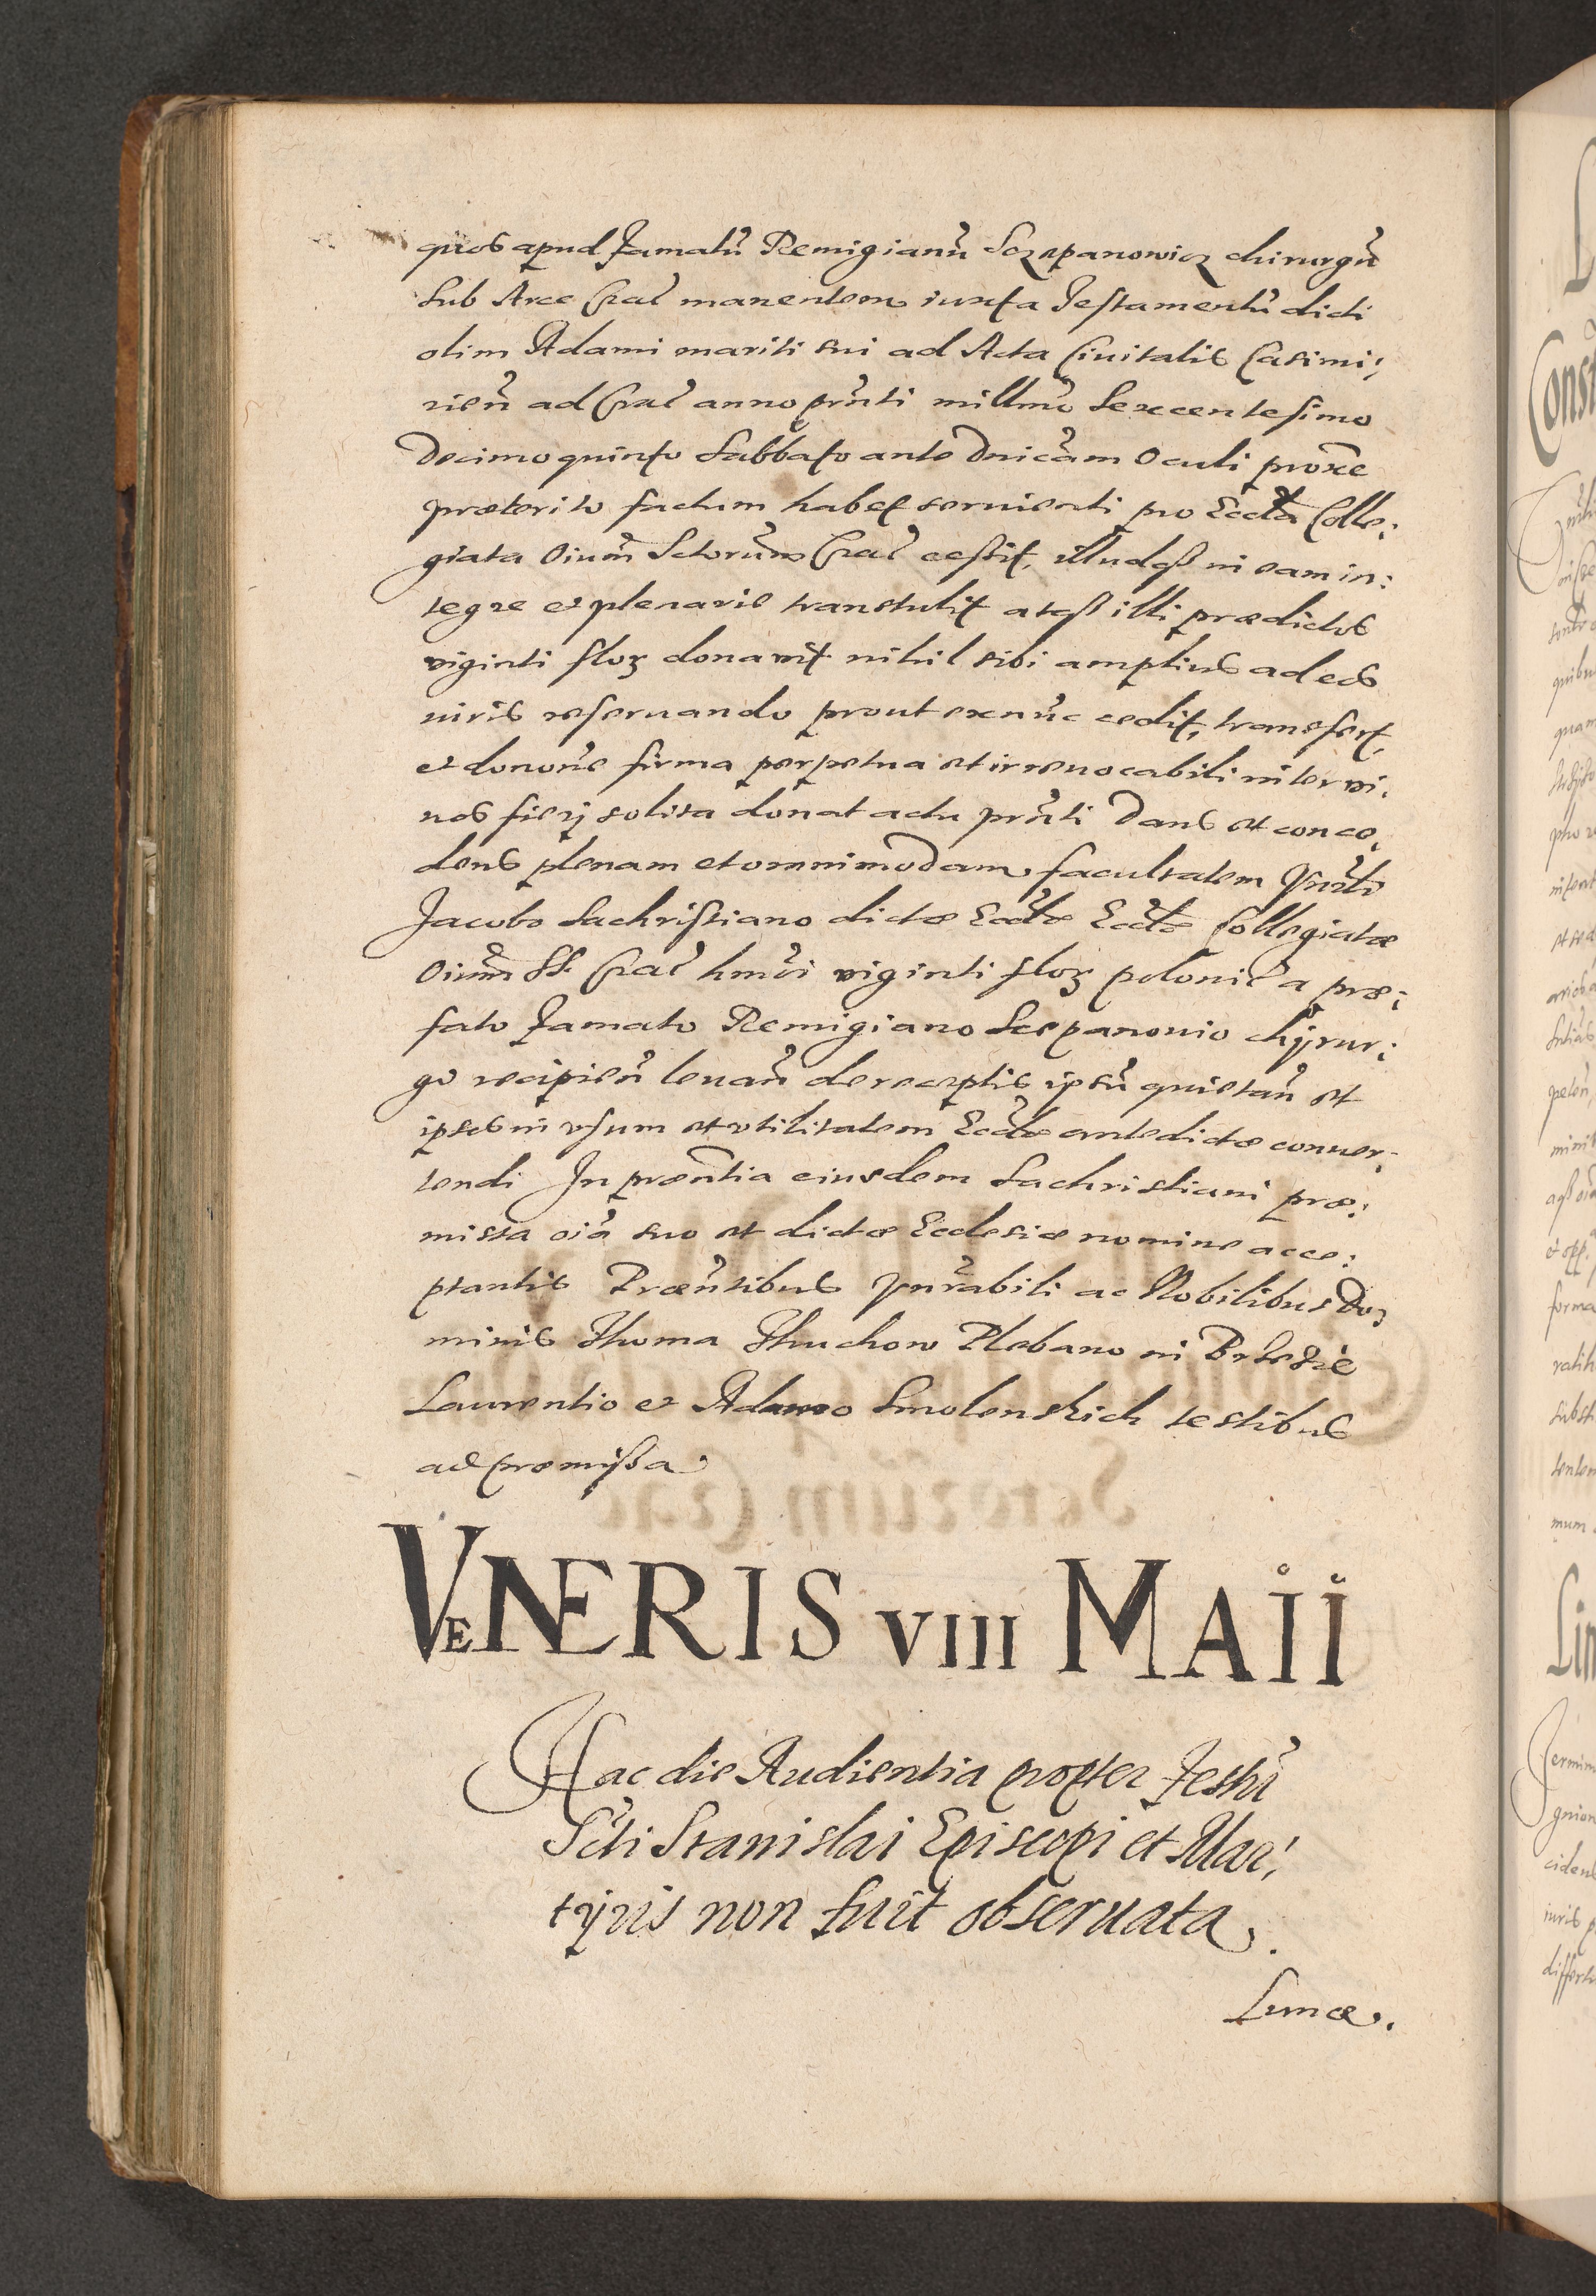 quos apud Famatũ Remigianũ Sczepanowicz chirurgũ
sub Arce Crac manentem iuxta Testamentũ dicti
olim Adami mariti sui ad Acta Ciuitatis Casimi:
rieñ ad Crac anno prñti millmo Sexcentesimo
Decimo quinto Sabbato ante Dnicam Oculi proxe
præterito factum habet seruienti pro Eccla Colle:
giata Oium Sctorum Crac cessit, illudqß in eam in:
tegre et plenarie transtulit atqß illi prædictos
viginti floz donavit nihil sibi amplius ad eos
iuris reseruando prout ex nũc cedit, transfert,
et donone firma perpetua et irreuocabili inter vi:
uos fierj solita donat actu prñti Dans et conce:
dens plenam et omnimodam facultatem
Jacobo Sachristiano dictæ Ecclæ Ecclæ Collegiatæ
Oium SS. Crac hmõi viginti floz polonic a præ:
fato Famato Remigiano Scepanouio chÿrur:
go recipieñ leuañ de receptis ipsũ quietañ et
ipsos in vsum et vtilitatem Ecclæ antedictæ conuer:
tendi In præntia eiusdem Sachristiani præ:
missa oia suo et dictæ Ecclesiæ nomine acce:
ptantis Præntibus Vnrabili ac Nobilibus Do:
minis Thoma Thuchow Plebano in Brzezie
Laurentio et Adamo Smolenskich testibus
ad præmißa
VENERIS VIII MAII
Hac die Audientia propter Festũ
Scti Stanislai Episcopi et Mar:
tÿris non fuit obseruata.
Lunæ.